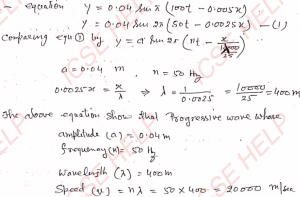 - equation y = 0.04 sin π (100t - 0.005x)
y = 0.04 sin 2π (50t - 0.0025x) - (1)
Comparing equ ① by y = a sin 2π (nt - x/λ)
a = 0.04 m, n = 50 Hz
0.0025x = x/λ ⇒ λ = 1/0.0025 = 10000/25 = 400m
The above equation show that Progressive wave whose
amplitude (a) = 0.04m
frequency (n) = 50 Hz
Wavelength (λ) = 400m
Speed (v) = nλ = 50 x 400 = 20000 m/sec